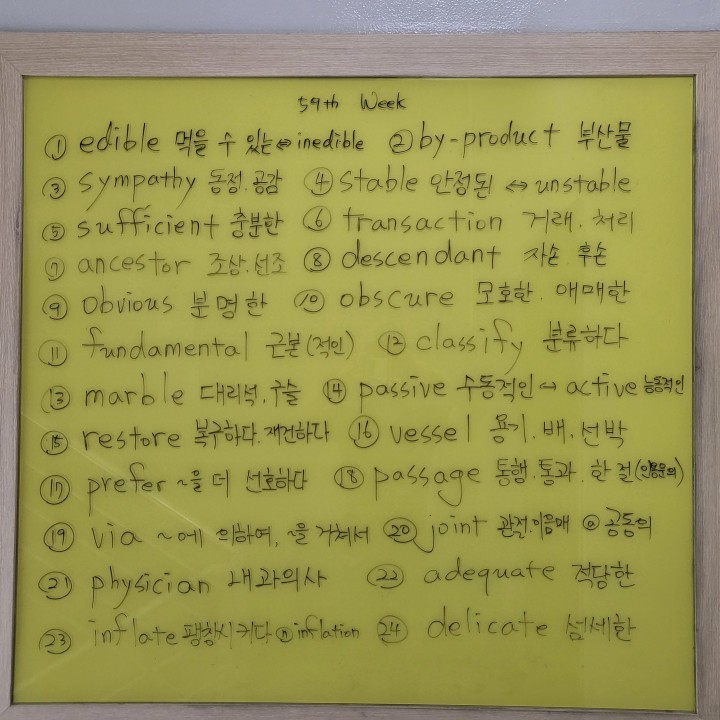 59th Week
① edible 먹을 수 있는 ↔ inedible ② by-product 부산물
③ sympathy 동정.공감 ④ stable 안정된 ↔ unstable
⑤ sufficient 충분한 ⑥ transaction 거래.처리
⑦ ancestor 조상.선조 ⑧ descendant 자손 후손
⑨ obvious 분명한 ⑩ obscure 모호한.애매한
⑪ fundamental 근본(적인) ⑫ classify 분류하다
⑬ marble 대리석,구슬 ⑭ passive 수동적인 ↔ active 능동적인
⑮ restore 복구하다.재건하다 ⑯ vessel 용기.배.선박
⑰ prefer ~을 더 선호하다 ⑱ passage 통행.통과.한 절(인용문의)
⑲ via ~에 의하여, ~을 거쳐서 ⑳ joint 관절.이음매 ⓐ 공동의
㉑ physician 내과의사 ㉒ adequate 적당한
㉓ inflate 팽창시키다 ⓝ inflation ㉔ delicate 섬세한